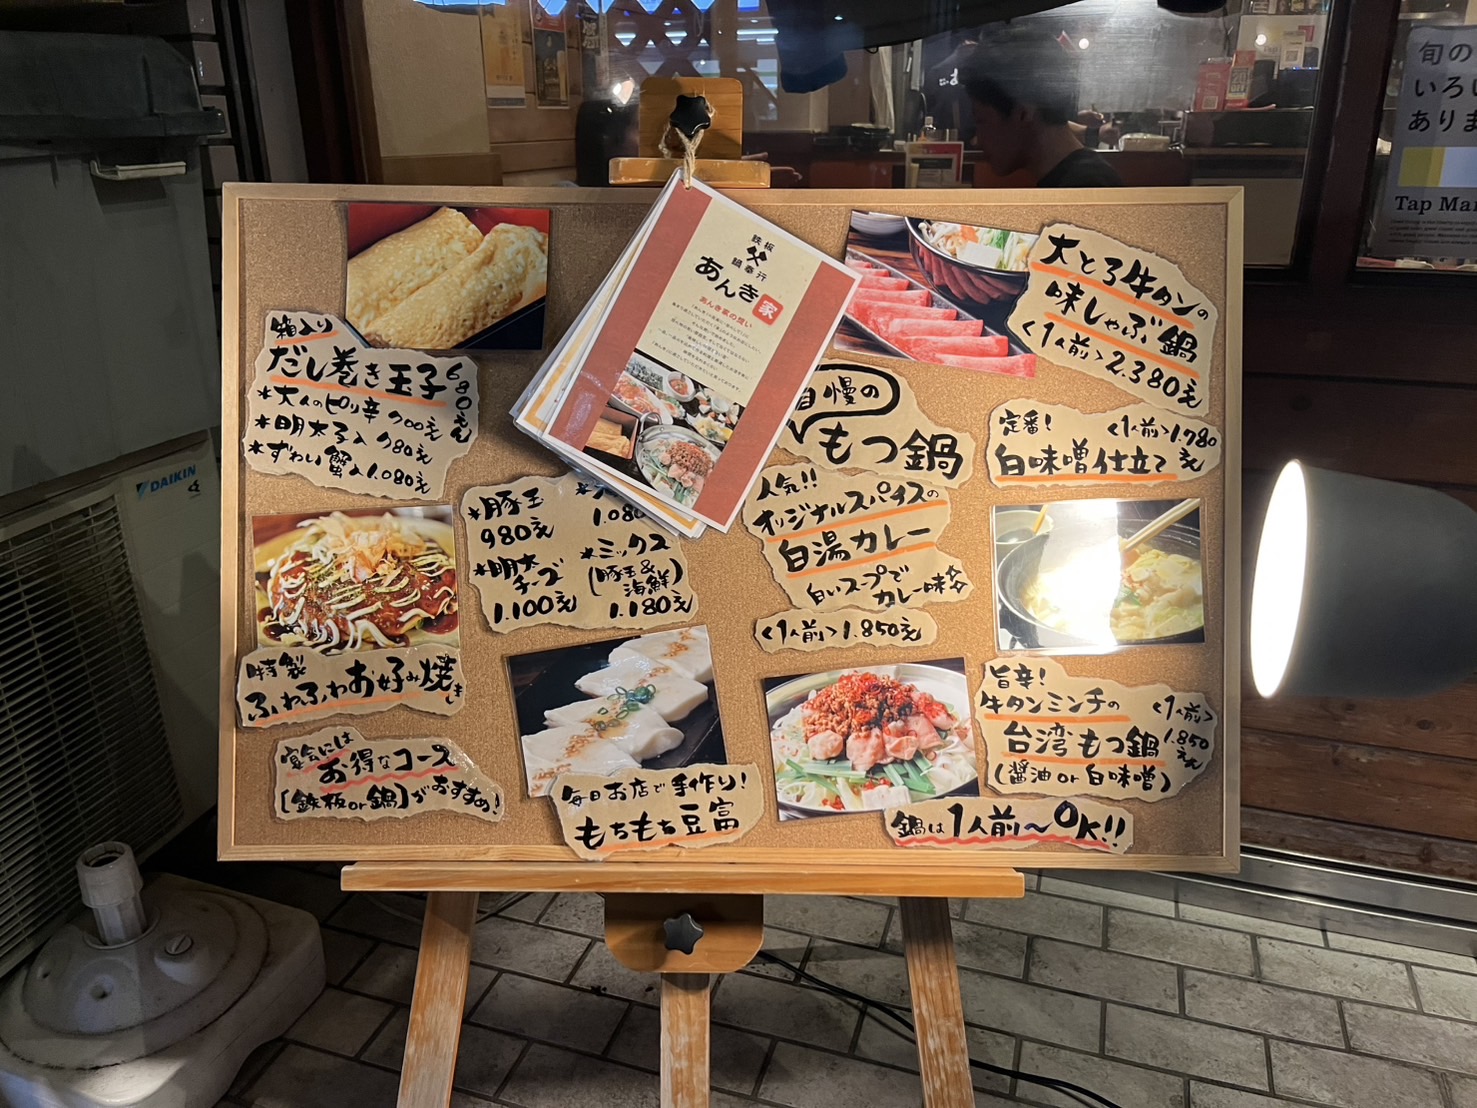 箱入り
だし巻き玉子 680えん
*大人のピリ辛 700えん
*明太子入 780えん
*ずわい蟹入 1.080えん
*豚玉
980えん
*明太
チーズ
1.100えん
1.080
*ミックス
(豚玉&
海鮮)
1.180えん
特製
ふわふわお好み焼き
宴会には
お得なコース
[鉄板or鍋]がおすすめ!
毎日お店で手作り!
もちもち豆富
鉄板
鍋奉行
あんき
家
あんき家の想い
大とろ牛タンの
味しゃぶ鍋
<1人前>2.380えん
自慢の
もつ鍋
人気!!
オリジナルスパイスの
白湯カレー
白いスープで
カレー味☆
<1人前>1.850えん
定番!
<1人前>1.780えん
白味噌仕立て
旨辛!
牛タンミンチの
<1人前>
1.850えん
台湾もつ鍋
(醤油or白味噌)
鍋は1人前〜OK!!
DAIKIN
旬の
いろい
ありま
Tap Mar